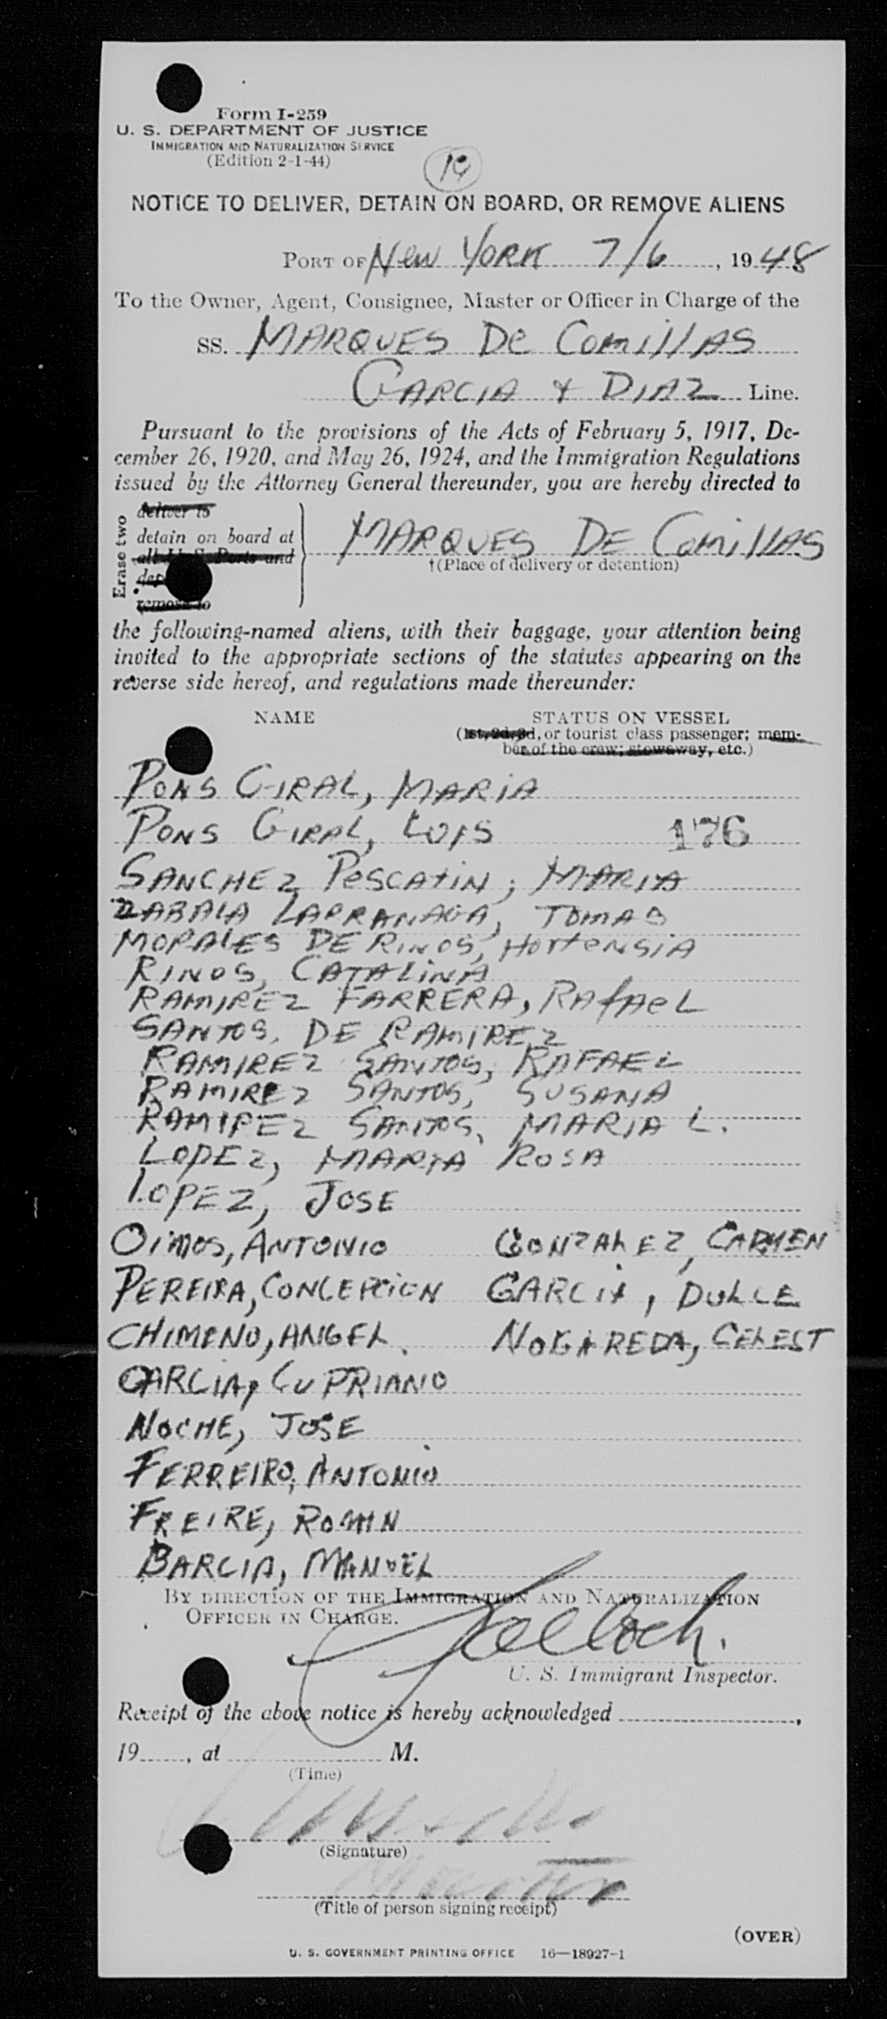 Form I-259
U. S. DEPARTMENT OF JUSTICE
IMMIGRATION AND NATURALIZATION SERVICE
(Edition 2-1-44)
NOTICE TO DELIVER, DETAIN ON BOARD, OR REMOVE ALIENS
PORT OF NEW YORK 7/6, 1948
To the Owner, Agent, Consignee, Master or Officer in Charge of the
SS. MARQUES DE COMILLAS
GARCIA & DIAZ Line.
Pursuant to the provisions of the Acts of February 5, 1917, De-
cember 26, 1920, and May 26, 1924, and the Immigration Regulations
issued by the Attorney General thereunder, you are hereby directed to
Erase two
deliver to
detain on board at
all U. S. Ports and
remove to
MARQUES DE COMILLAS
†(Place of delivery or detention)
the following-named aliens, with their baggage, your attention being
invited to the appropriate sections of the statutes appearing on the
reverse side hereof, and regulations made thereunder:
NAME STATUS ON VESSEL
(1st, 2d, 3d, or tourist class passenger; mem-
ber of the crew; stowaway, etc.)
PONS GIRAL, MARIA
PONS GIRAL, LUIS 176
SANCHEZ PESCATIN, MARIA
ZABALA LARRANAGA, TOMAS
MORALES DE RINOS, HORTENSIA
RINOS, CATALINA
RAMIREZ FARRERA, RAFAEL
SANTOS, DE RAMIREZ
RAMIREZ SANTOS, RAFAEL
RAMIREZ SANTOS, SUSANA
RAMIREZ SANTOS, MARIA L.
LOPEZ, MARIA ROSA
LOPEZ, JOSE
OLMOS, ANTONIO GONZALEZ, CARMEN
PEREIRA, CONCEPCION GARCIA, DULCE
CHIMENO, ANGEL NOGAREDA, CELEST
GARCIA, CUPRIANO
NOCHE, JOSE
FERREIRO, ANTONIO
FREIRE, ROMAN
BARCIA, MANUEL
BY DIRECTION OF THE IMMIGRATION AND NATURALIZATION
OFFICER IN CHARGE.
U. S. Immigrant Inspector.
Receipt of the above notice is hereby acknowledged ,
19 , at M.
(Time)
(Signature)
(Title of person signing receipt)
(OVER)
U. S. GOVERNMENT PRINTING OFFICE 16—18927-1